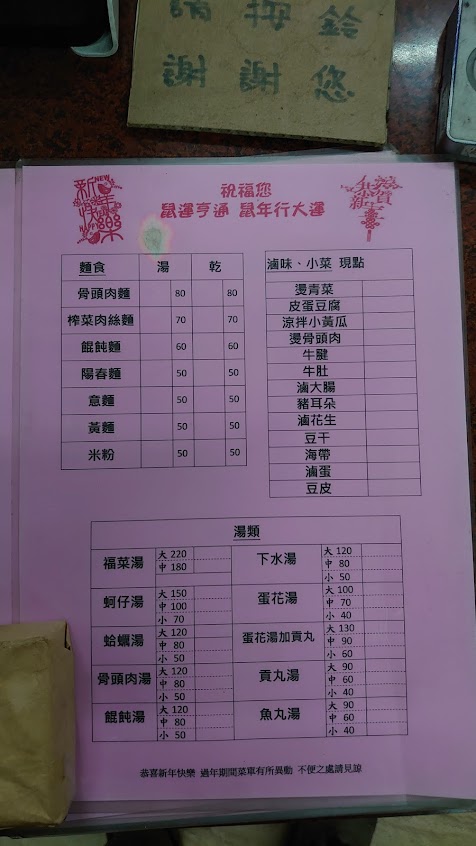 請按鈴
謝謝您
新年快樂
NEW
恭賀新喜
祝福您
鼠運亨通 鼠年行大運
麵食 湯 乾
骨頭肉麵 80 80
榨菜肉絲麵 70 70
餛飩麵 60 60
陽春麵 50 50
意麵 50 50
黃麵 50 50
米粉 50 50
滷味、小菜 現點
燙青菜
皮蛋豆腐
涼拌小黃瓜
燙骨頭肉
牛腱
牛肚
滷大腸
豬耳朵
滷花生
豆干
海帶
滷蛋
豆皮
湯類
福菜湯
大 220
中 180
下水湯
大 120
中 80
小 50
蚵仔湯
大 150
中 100
小 70
蛋花湯
大 100
中 70
小 40
蛤蠣湯
大 120
中 80
小 50
蛋花湯加貢丸
大 130
中 90
小 60
骨頭肉湯
大 120
中 80
小 50
貢丸湯
大 90
中 60
小 40
餛飩湯
大 120
中 80
小 50
魚丸湯
大 90
中 60
小 40
恭喜新年快樂 過年期間菜單有所異動 不便之處請見諒